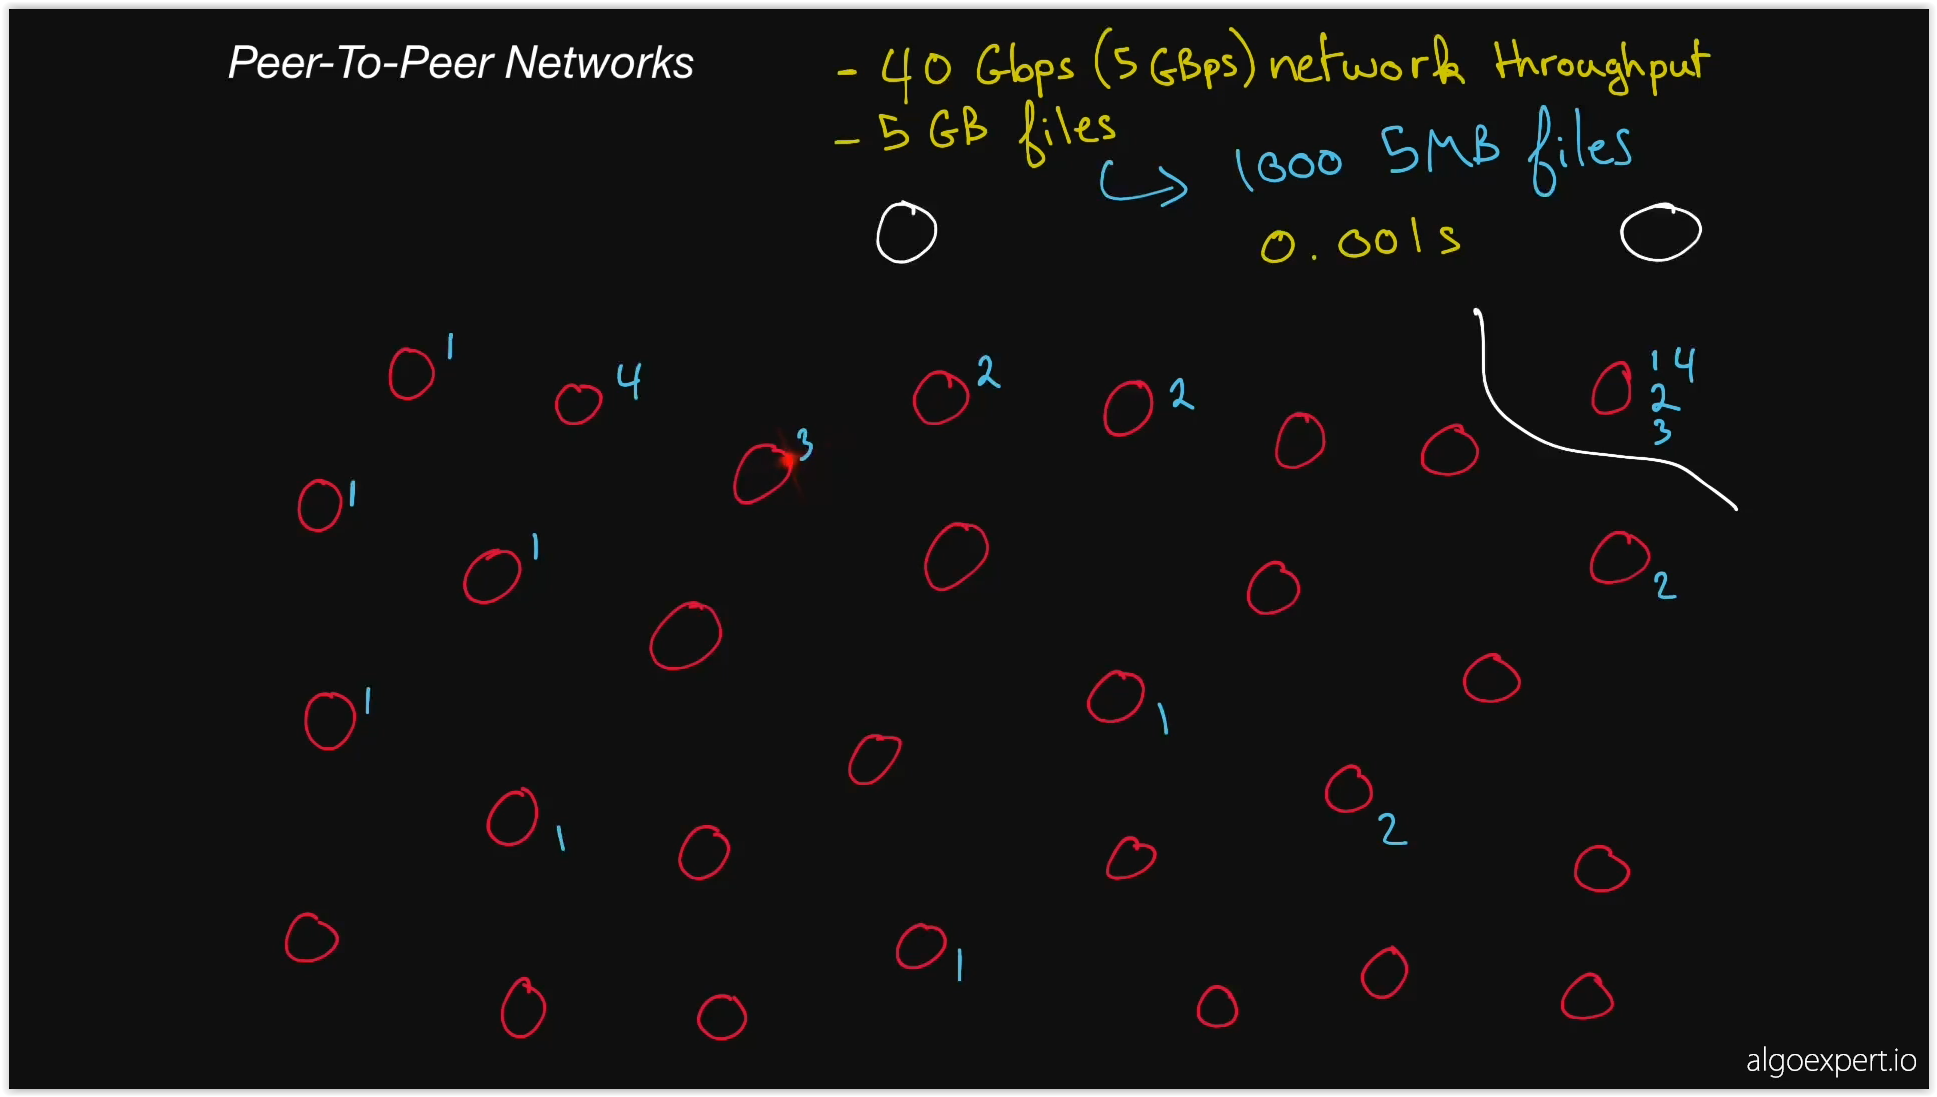 Peer-To-Peer Networks
- 40 Gbps (5 GBps) network throughput
- 5 GB files
1000 5MB files
0.001s
1
4
2
2
1 4
2
3
3
1
1
2
1
1
1
2
1
algoexpert.io